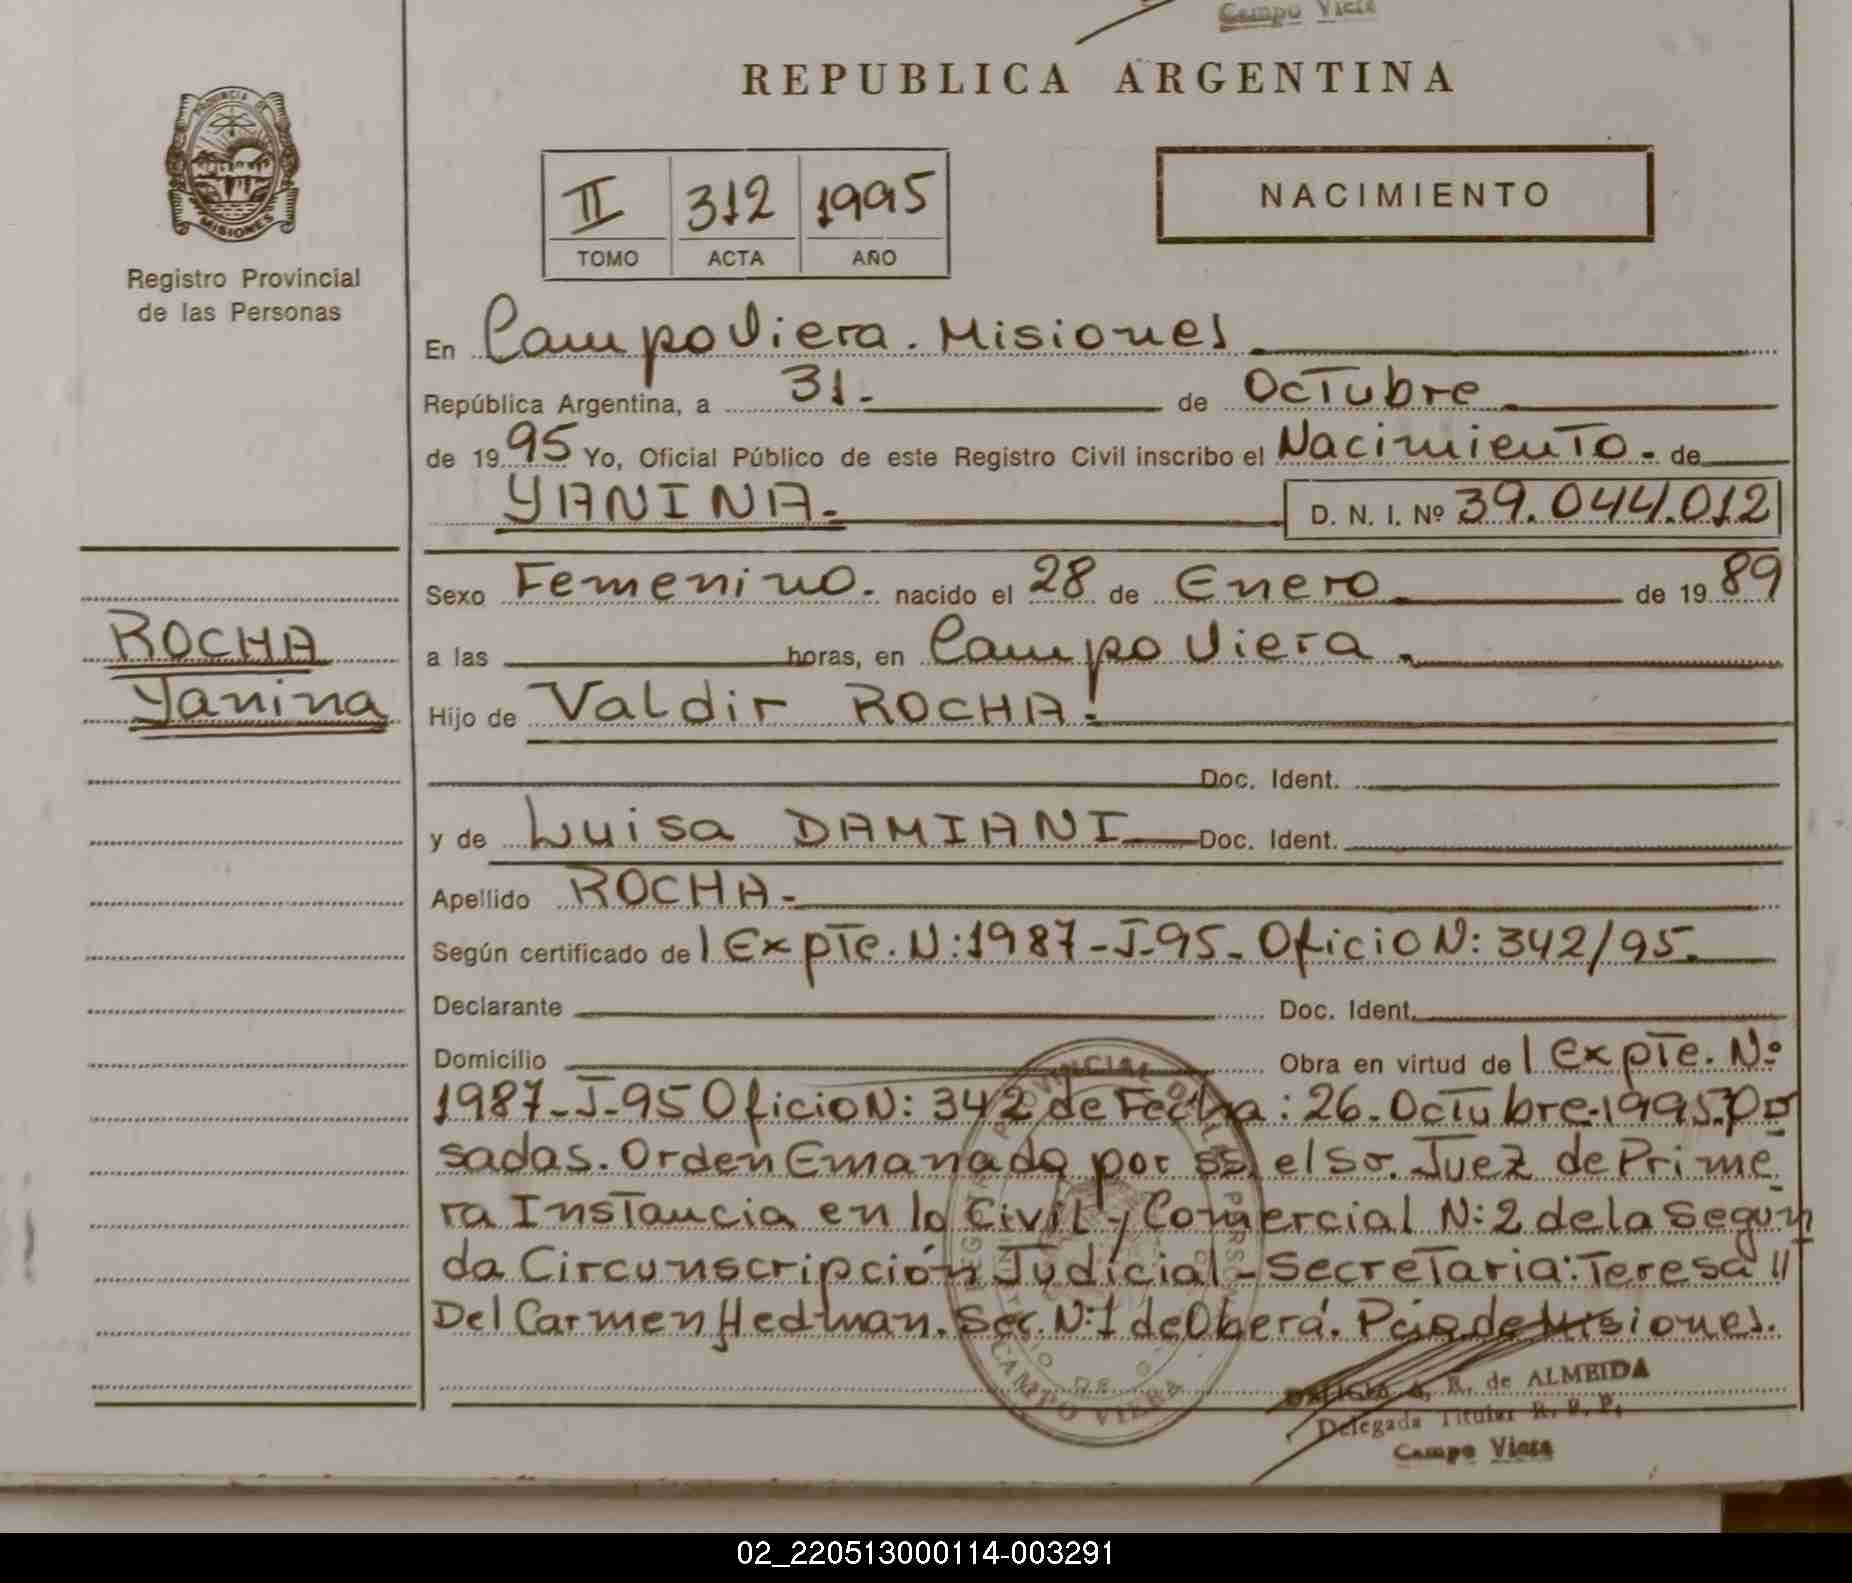 Campo Viera
REPUBLICA ARGENTINA
PROVINCIA DE
MISIONES
Registro Provincial
de las Personas
II 312 1995
TOMO ACTA AÑO
NACIMIENTO
En Campo Viera. Misiones
República Argentina, a 31.- de Octubre
de 1995 Yo, Oficial Público de este Registro Civil inscribo el Nacimiento. de
YANINA.- D. N. I. Nº 39.044.012
Sexo Femenino. nacido el 28 de Enero de 1989
ROCHA
Yanina
a las horas, en Campo Viera.
Hijo de Valdir ROCHA.
Doc. Ident.
y de Luisa DAMIANI Doc. Ident.
Apellido ROCHA-
Según certificado de / Expte. N: 1987-J-95- Oficio N: 342/95.
Declarante Doc. Ident.
Domicilio Obra en virtud de / Expte. Nº
1987-J-95 Oficio N: 342 de Fecha: 26-Octubre-1995. Po
sadas. Orden Emanada por SS. el Sr. Juez de Prime
ra Instancia en lo Civil y Comercial N: 2 de la Segun
da Circunscripción Judicial - Secretaria: Teresa //
Del Carmen Hedman. Sec. N: 1 de Oberá. Pcia de Misiones.
CAMPO VIERA
R. de ALMEIDA
Delegada Titular R. P. P.
Campo Viera
02_220513000114-003291